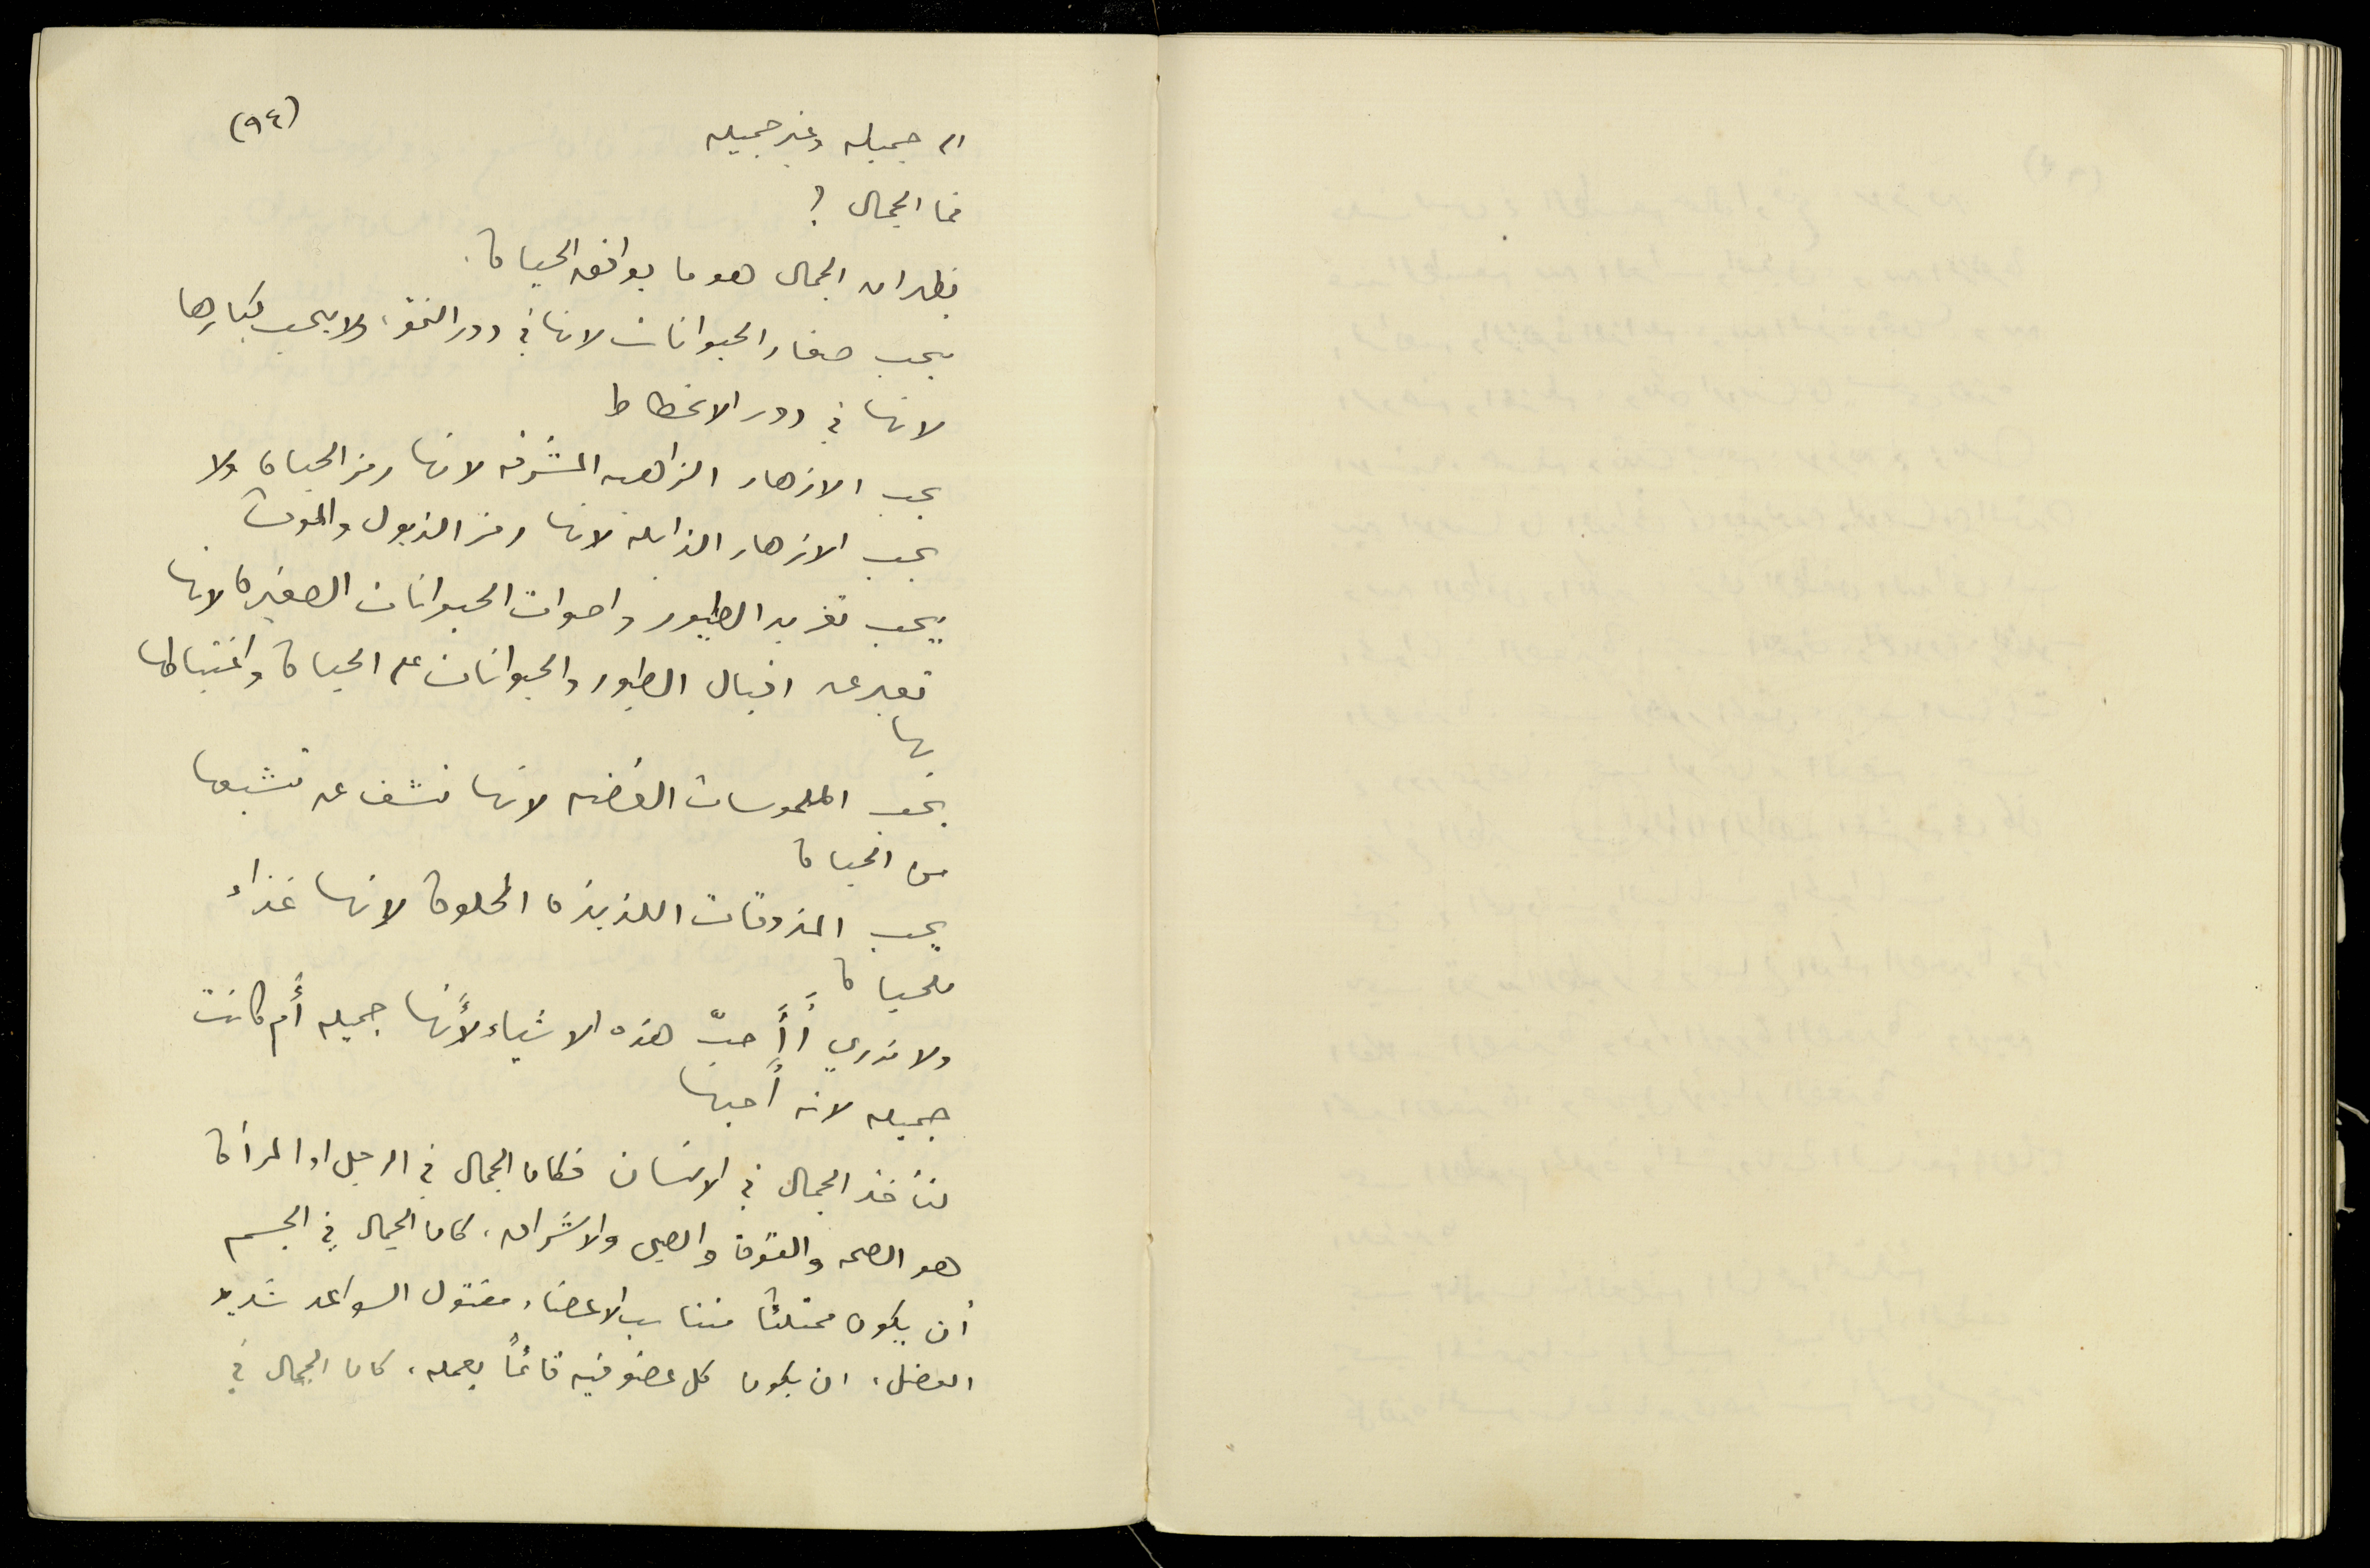 (٩٤)
الى جميله وغير جميله
فما الجمال ؟
فظهر ان الجمال هو ما يوافق الحياة.
يحب صغار الحيوانات لانها في دور النمو، ولا يحب كبارها
لانها في دور الانحطاط
يحب الازهار الزاهيه المشرقه لانها رمز الحياة ولا
يحب الازهار الذابله لانها رمز الذبول والموت
يحب تغريد الطيور واصوات الحيوانات الصغيرة لانها
تعبر عن اقبال الطيور والحيوانات على الحياة واغتباطها
بها
يحب الملموسات الغضه لانها تشف عن تشبعها
من الحياة
يحب المذوقات اللذيذة الحلوة لانها غذاء
للحياة
ولا ندري أَأَحبّ هذه الاشياء لأَنها جميله أَم كانت
جميله لانه أَحبها
لنأخذ الجمال في الانسان فكان الجمال في الرجل او المرأة
هو الصحه والقوة والصبى والاشراق، كان الجمال في الجسم
أن يكون ممتلئا متناسب الاعضاء مفتول السواعد شديد
العضل، ان يكون كل عضو فيه قائماً بعمله، كان الجمال في